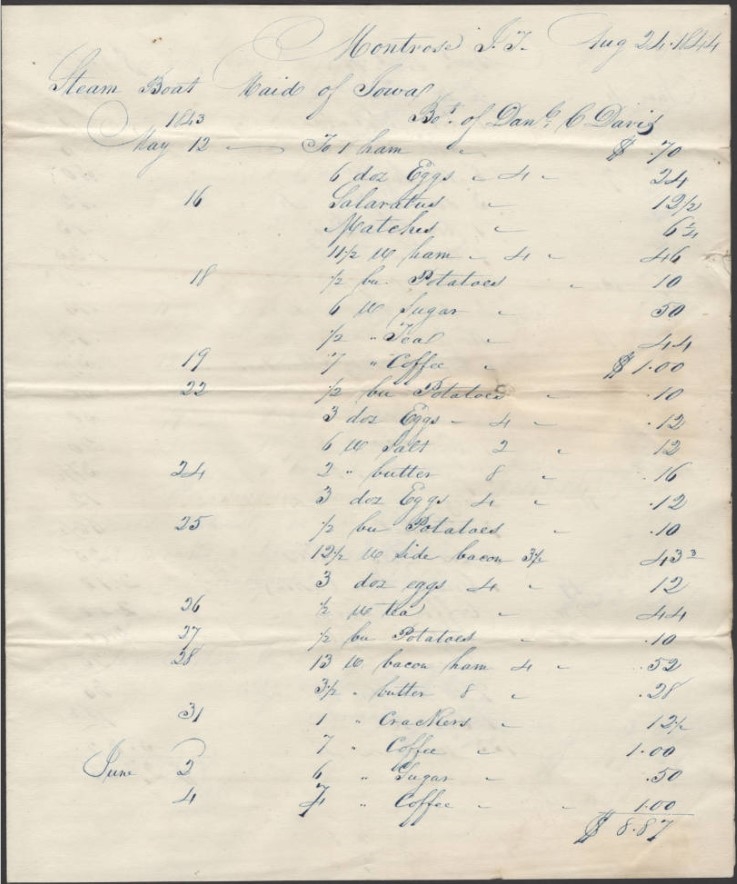 Montrose I.T. Aug 24. 1844
Steam Boat Maid of Iowa
1843 Bot. of Danl. C Davis
May 12 — To 1 ham " $ .70
6 doz Eggs " 4 " 24
16 Salaratus " 12 1/2
Matches " 6 1/4
11 1/2 lb ham " 4 " 46
18 1/2 bu. Potatoes " 10
6 lb Sugar " 50
1/2 " Tea " 44
19 7 " Coffee " $ 1.00
22 1/2 bu Potatoes " .10
3 doz Eggs " 4 " .12
6 lb Salt 2 " 12
24 2 " butter 8 " .16
3 doz Eggs 4 " .12
25 1/2 bu Potatoes " .10
12 1/2 lb Side bacon 3 1/2 43
3 doz eggs 4 " 12
26 1/2 lb tea " 44
27 1/2 bu Potatoes " .10
28 13 lb bacon ham 4 " .52
3 1/2 " butter 8 " .28
31 1 " Crackers " 12 1/2
7 " Coffee " 1.00
June 2 6 " Sugar " .50
4 7 " Coffee " " 1.00
$ 8.87